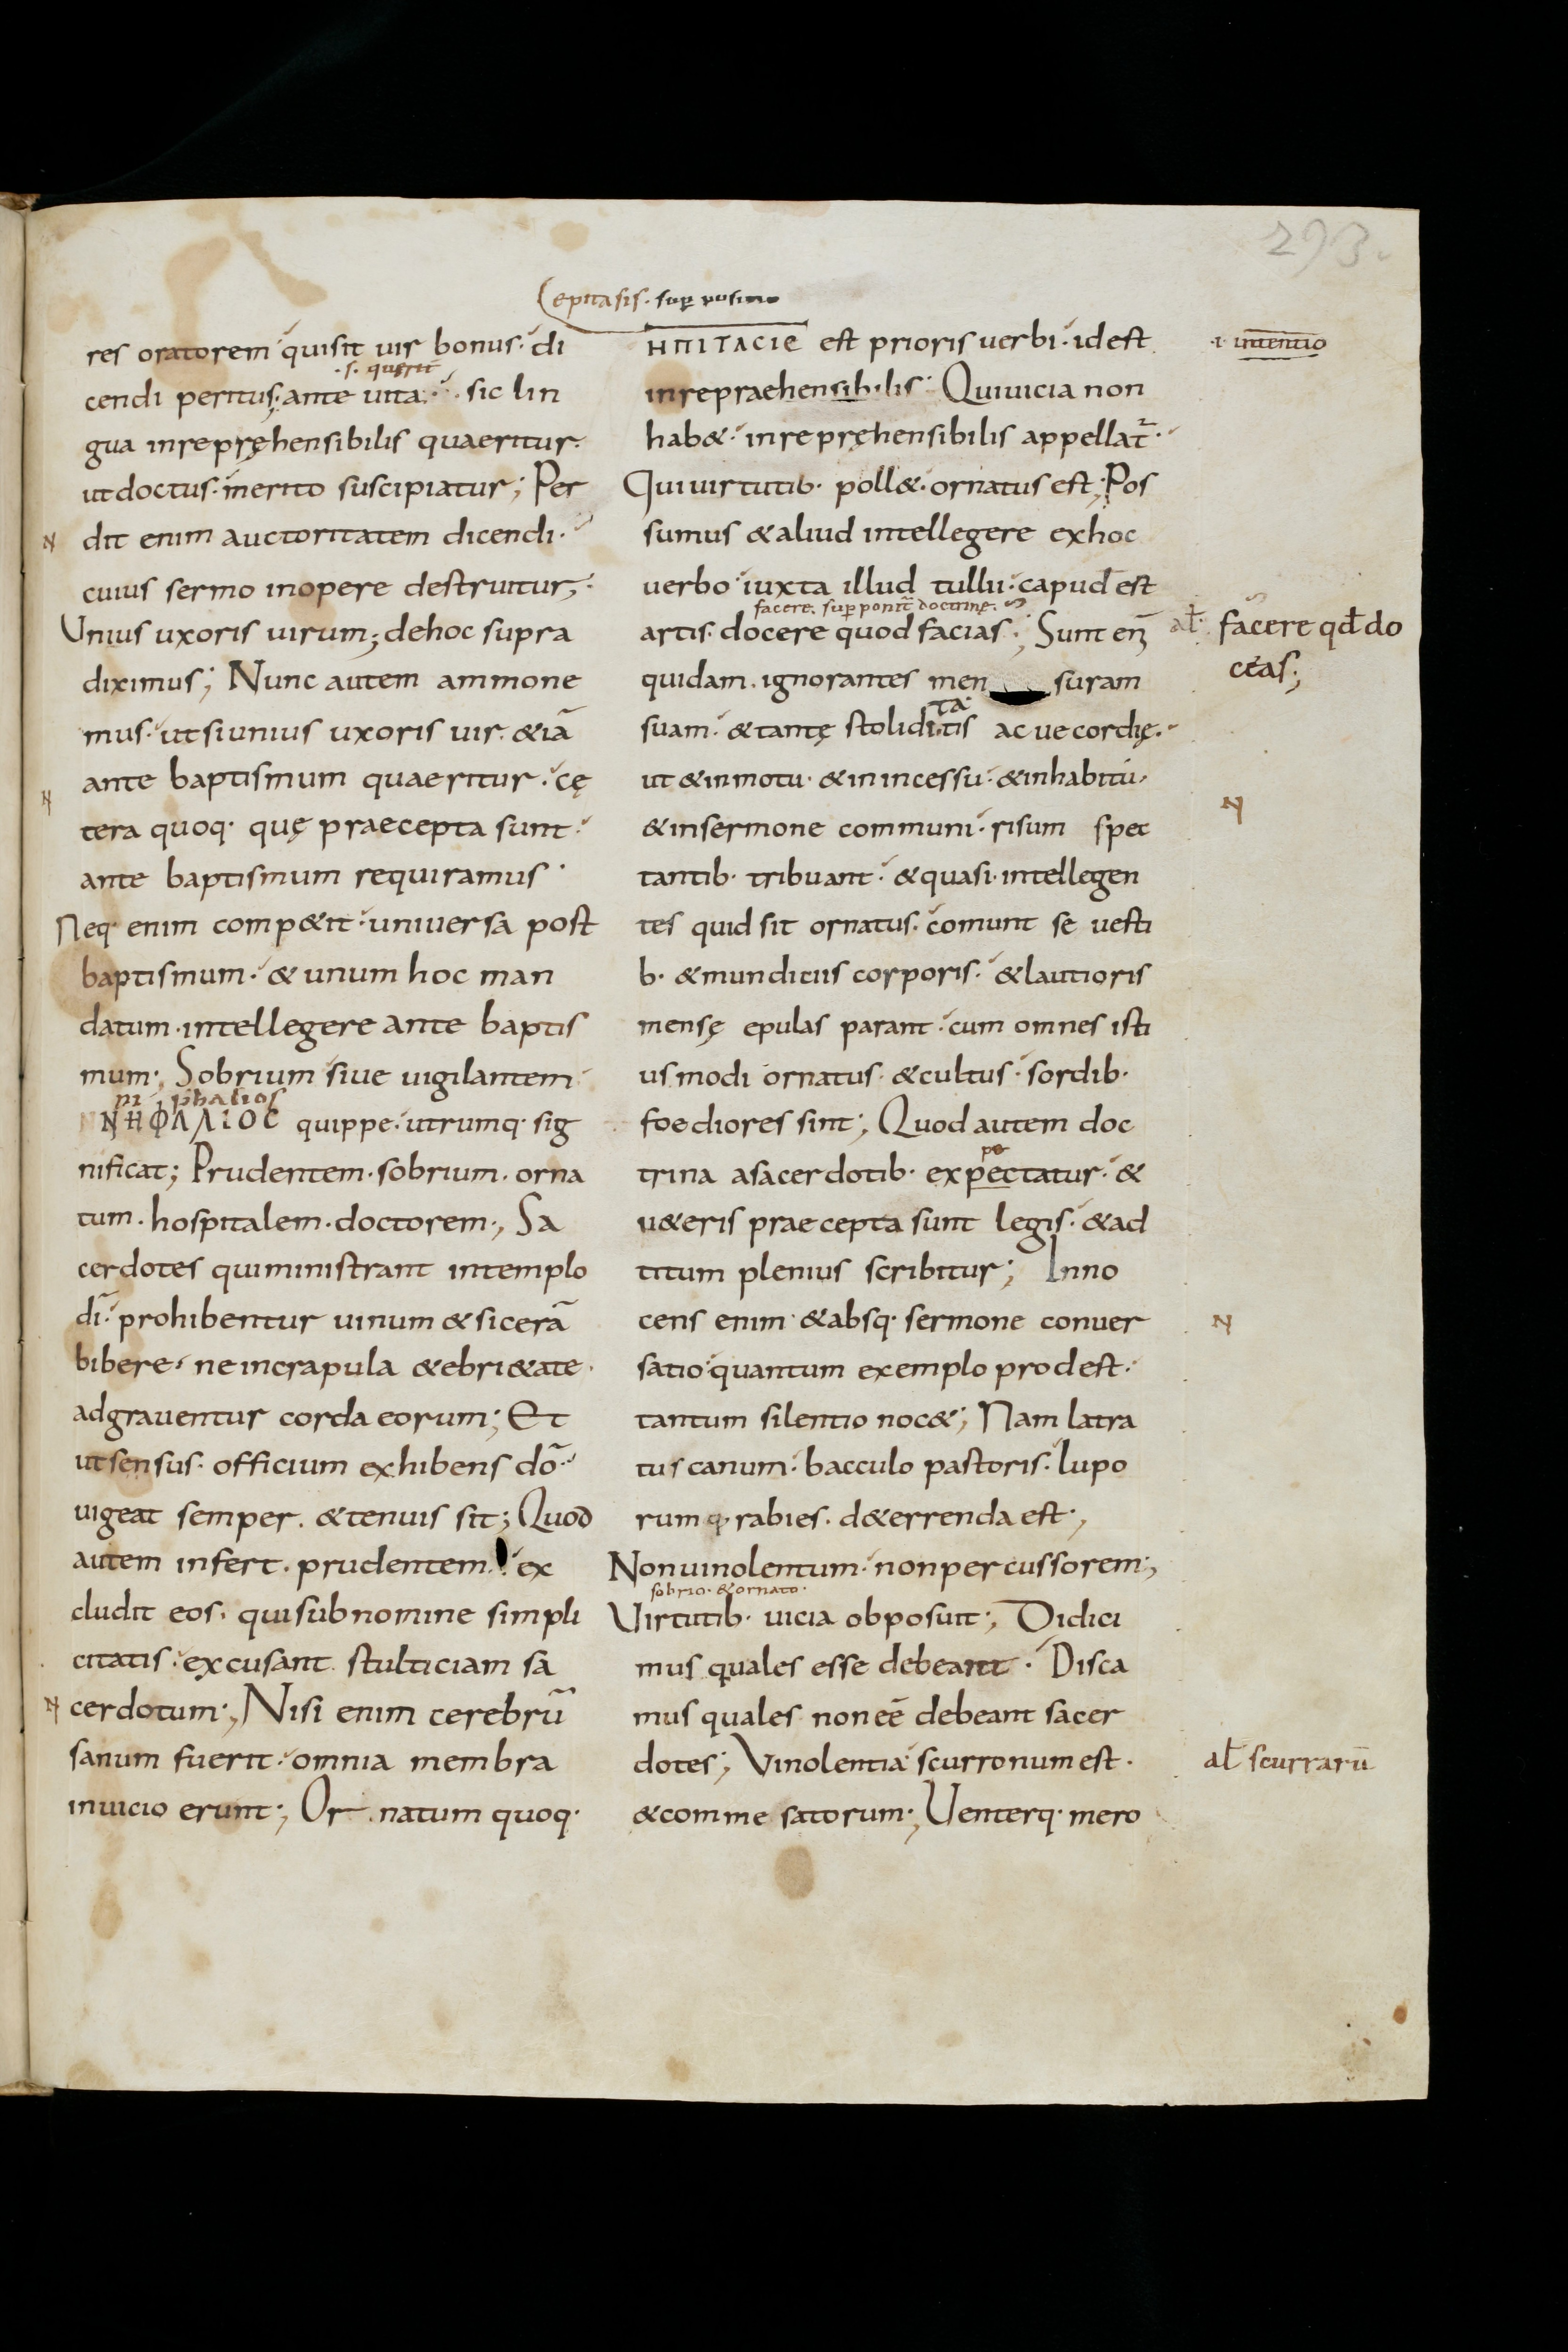 293.
(epitasis. suppositio
res oratorem quisit vir bonus. di
·s· querit
cendi peritus; ante uita:· sic lin
gua inrepręhensibilis quaeritur.
ut doctus. merito suscipiatur; Per
N
dit enim auctoritatem dicendi.
cuius sermo inopere destruitur;
Unius uxoris uirum; dehoc supra
diximus; Nunc autem ammone
mus. ut si unius uxoris uir. &iā
ante baptismum quaeritur. cę
N
tera quoq· quę praecepta sunt.
ante baptismum requiramus·
Neq· enim comp&it. uniuersa post
baptismum. & unum hoc man
datum. intellegere ante baptis
mum; Sobrium siue uigilantem
ni phalios
ΝΗΦΑΛΙΟC quippe. utrumq· sig
nificat; Prudentem. sobrium. orna
tum. hospitalem. doctorem; Sa
cerdotes quiministrant intemplo
dī. prohibentur uinum & sicerā
bibere. ne incrapula & ebri&ate.
adgrauentur corda eorum; Et
ut sensus. officium exhibens dō.
uigeat semper. & tenuis sit; Quod
autem infert. prudentem. ex
cludit eos. qui sub nomine simpli
citatis. excusant stulticiam sa
N
cerdotum; Nisi enim cerebrū
sanum fuerit. omnia membra
inuicio erunt; Or natum quoq·
ΗΠΙΤΑCΙΕ est prioris uerbi. idest
·i· intentio
inrepraehensibilis. Qui uicia non
hab&. inrepręhensibilis appellat̄.
Qui uirtutib· poll&. ornatus est; Pos
sumus & aliud intellegere exhoc
uerbo. iuxta illud tullii. capud est
facere. sup ponit̄ doctrinę.
artis. docere quod facias; Sunt en̄
al̄. facere qd̄ do
ceas;
quidam. ignorantes men suram
ta
suam. & tantę stoliditis ac uecordię.
ut & in motu. & in incessu. & in habitu.
N
& in sermone communi. risum spec
tantib· tribuant. & quasi. intellegen
tes quid sit ornatus. comunt se uesti
b· & mundiciis corporis. & lautioris
mensę epulas parant. cum omnes isti
us modi ornatus. & cultus. sordib·
foediores sint; Quod autem doc
pe
trina a sacerdotib· expectatur. &
u&eris praecepta sunt legis. & ad
titum plenius scribitur; Inno
cens enim & absq· sermone conuer
N
satio. quantum exemplo prodest.
tantum silentio noc&; Nam latra
tus canum. bacculo pastoris. lupo
rumq· rabies. d&errenda est;
Non uinolentum. non percussorem;
sobrio. & ornato.
Virtutib· uicia obposuit; Didici
mus quales esse debeant. Disca
mus quales non eē debeant sacer
dotes; Vinolentia scurronum est.
al̄ scurrarū
& comme satorum; Uenterq· mero